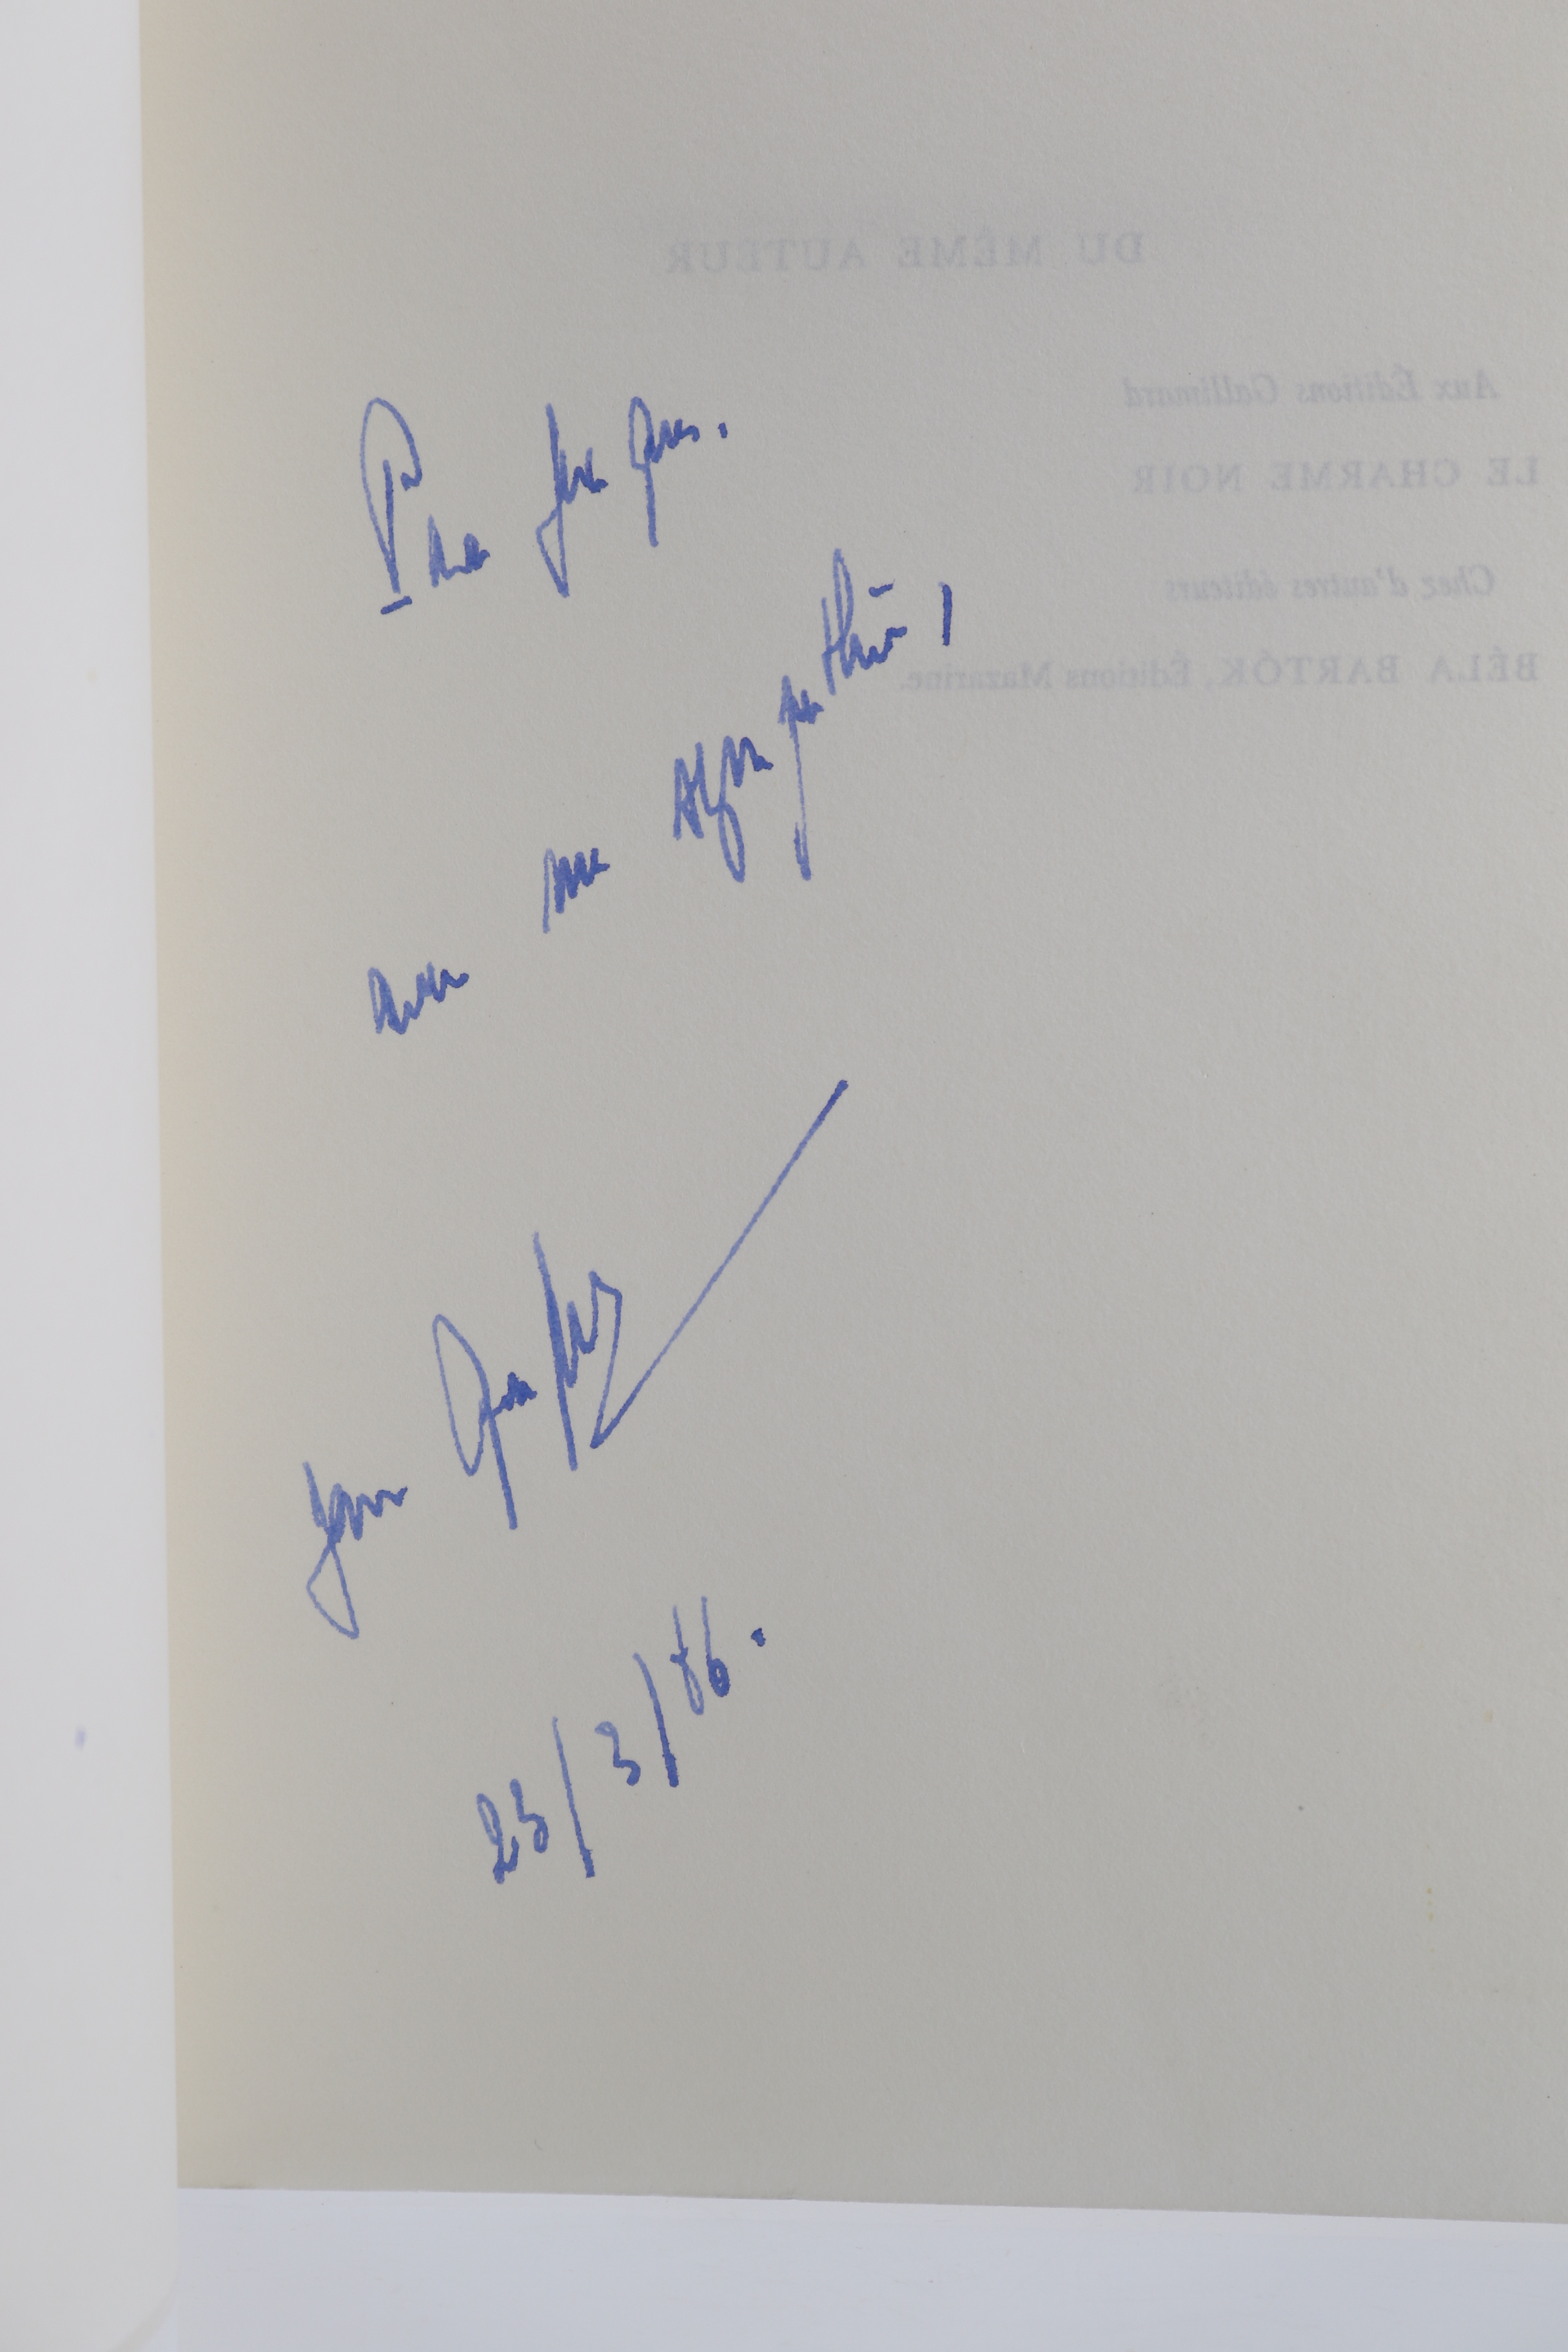 DU MÊME AUTEUR
Aux Éditions Gallimard
LE CHARME NOIR
Chez d'autres éditeurs
BÉLA BARTÓK, Éditions Mazarine.
Pour Jacques.
avec ma sympathie,
Yann
23/3/86.